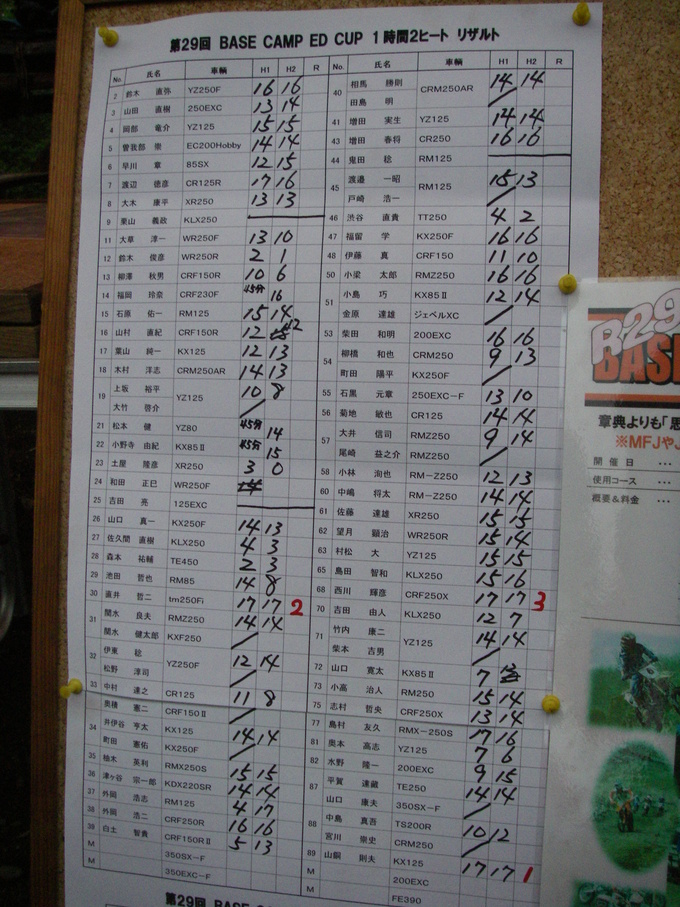 第29回 BASE CAMP ED CUP 1時間2ヒート リザルト
No. 氏名 車輌 H1 H2 R
2 鈴木 直弥 YZ250F 16 16
3 山田 直樹 250EXC 13 14
4 岡部 竜介 YZ125 15 15
5 曽我部 崇 EC200Hobby 14 14
6 早川 章 85SX 12 15
7 渡辺 徳彦 CR125R 17 16
8 大木 康平 XR250 13 13
9 栗山 義政 KLX250
11 大草 淳一 WR250F 13 10
12 鈴木 俊彦 WR250R 2 1
13 柳澤 秋男 CRF150R 10 6
14 福岡 玲奈 CRF230F 45分 16
15 石原 佑一 RM125 15 14
16 山村 直紀 CRF150R 12 12
17 葉山 純一 KX125 12 13
18 木村 洋志 CRM250AR 14 13
19 上坂 裕平 YZ125 10 8
大竹 啓介
21 松本 健 YZ80 45分 14
22 小野寺 由紀 KX85Ⅱ 45分 15
23 土屋 隆彦 XR250 3 0
24 和田 正巳 WR250F
25 吉田 亮 125EXC
26 山口 真一 KX250F 14 13
27 佐久間 直樹 KLX250 4 3
28 森本 祐輔 TE450 2 3
29 池田 哲也 RM85 14 8
30 直井 哲二 tm250Fi 17 17 2
31 関水 良夫 RMZ250 14 14
関水 健太郎 KXF250
32 伊東 稔 YZ250F 12 14
松野 淳司
33 中村 達之 CR125 11 8
奥積 憲二 CRF150Ⅱ
34 井伊谷 亨太 KX125 14 14
町田 憲佑 KX250F
35 柚木 英利 RMX250S 15 15
36 津ヶ谷 宗一郎 KDX220SR 14 14
37 外岡 浩志 RM125 4 17
38 外岡 浩二 CRF250R 16 16
39 白土 智貴 CRF150RⅡ 5 13
M 350SX-F
M 350EXC-F
No. 氏名 車輌 H1 H2 R
40 相馬 勝則 CRM250AR 14 14
田島 明
41 増田 実生 YZ125 14 14
43 増田 春将 CR250 16 16
44 鬼田 稔 RM125
45 渡邉 一昭 RM125 15 13
戸崎 浩一
46 渋谷 直貴 TT250 4 2
47 福留 学 KX250F 16 16
48 伊藤 真 CRF150 11 10
50 小梁 太郎 RMZ250 16 16
51 小島 巧 KX85Ⅱ 12 14
金原 達雄 ジェベルXC
53 柴田 和明 200EXC 16 16
54 柳橋 和也 CRM250 9 13
町田 陽平 KX250F
55 石黒 元章 250EXC-F 13 10
56 菊地 敏也 CR125 14 14
57 大井 信司 RMZ250 9 14
尾崎 益之介 RMZ250
58 小林 洵也 RM-Z250 12 13
60 中嶋 将太 RM-Z250 14 14
61 佐藤 達雄 XR250 15 15
62 望月 顕治 WR250R 15 14
63 村松 大 YZ125 15 15
65 島田 智和 KLX250 15 16
68 西川 輝彦 CRF250X 17 17 3
70 吉田 由人 KLX250 12 7
71 竹内 康二 YZ125 14 14
柴本 吉男
72 山口 寛太 KX85Ⅱ 7
73 小高 治人 RM250 15 14
75 志村 哲央 CRF250X 13 14
77 島村 友久 RMX-250S 17 16
81 奥本 高志 YZ125 7 6
82 水野 隆一 200EXC 9 15
87 平賀 達蔵 TE250 14 14
山口 康夫 350SX-F
88 中島 真吾 TS200R 10 12
宮川 崇史 CRM250
89 山銅 則夫 KX125 17 17 1
M 200EXC
M FE390
第29回 BASE
B29
BASE
章典よりも「思
※MFJや
開催日 ...
使用コース ...
概要&料金 ...